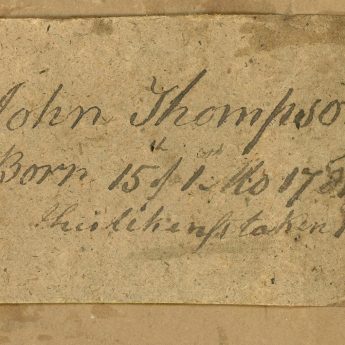 John Thompso
Born 15th of 1st Mo 178
this likeness taken